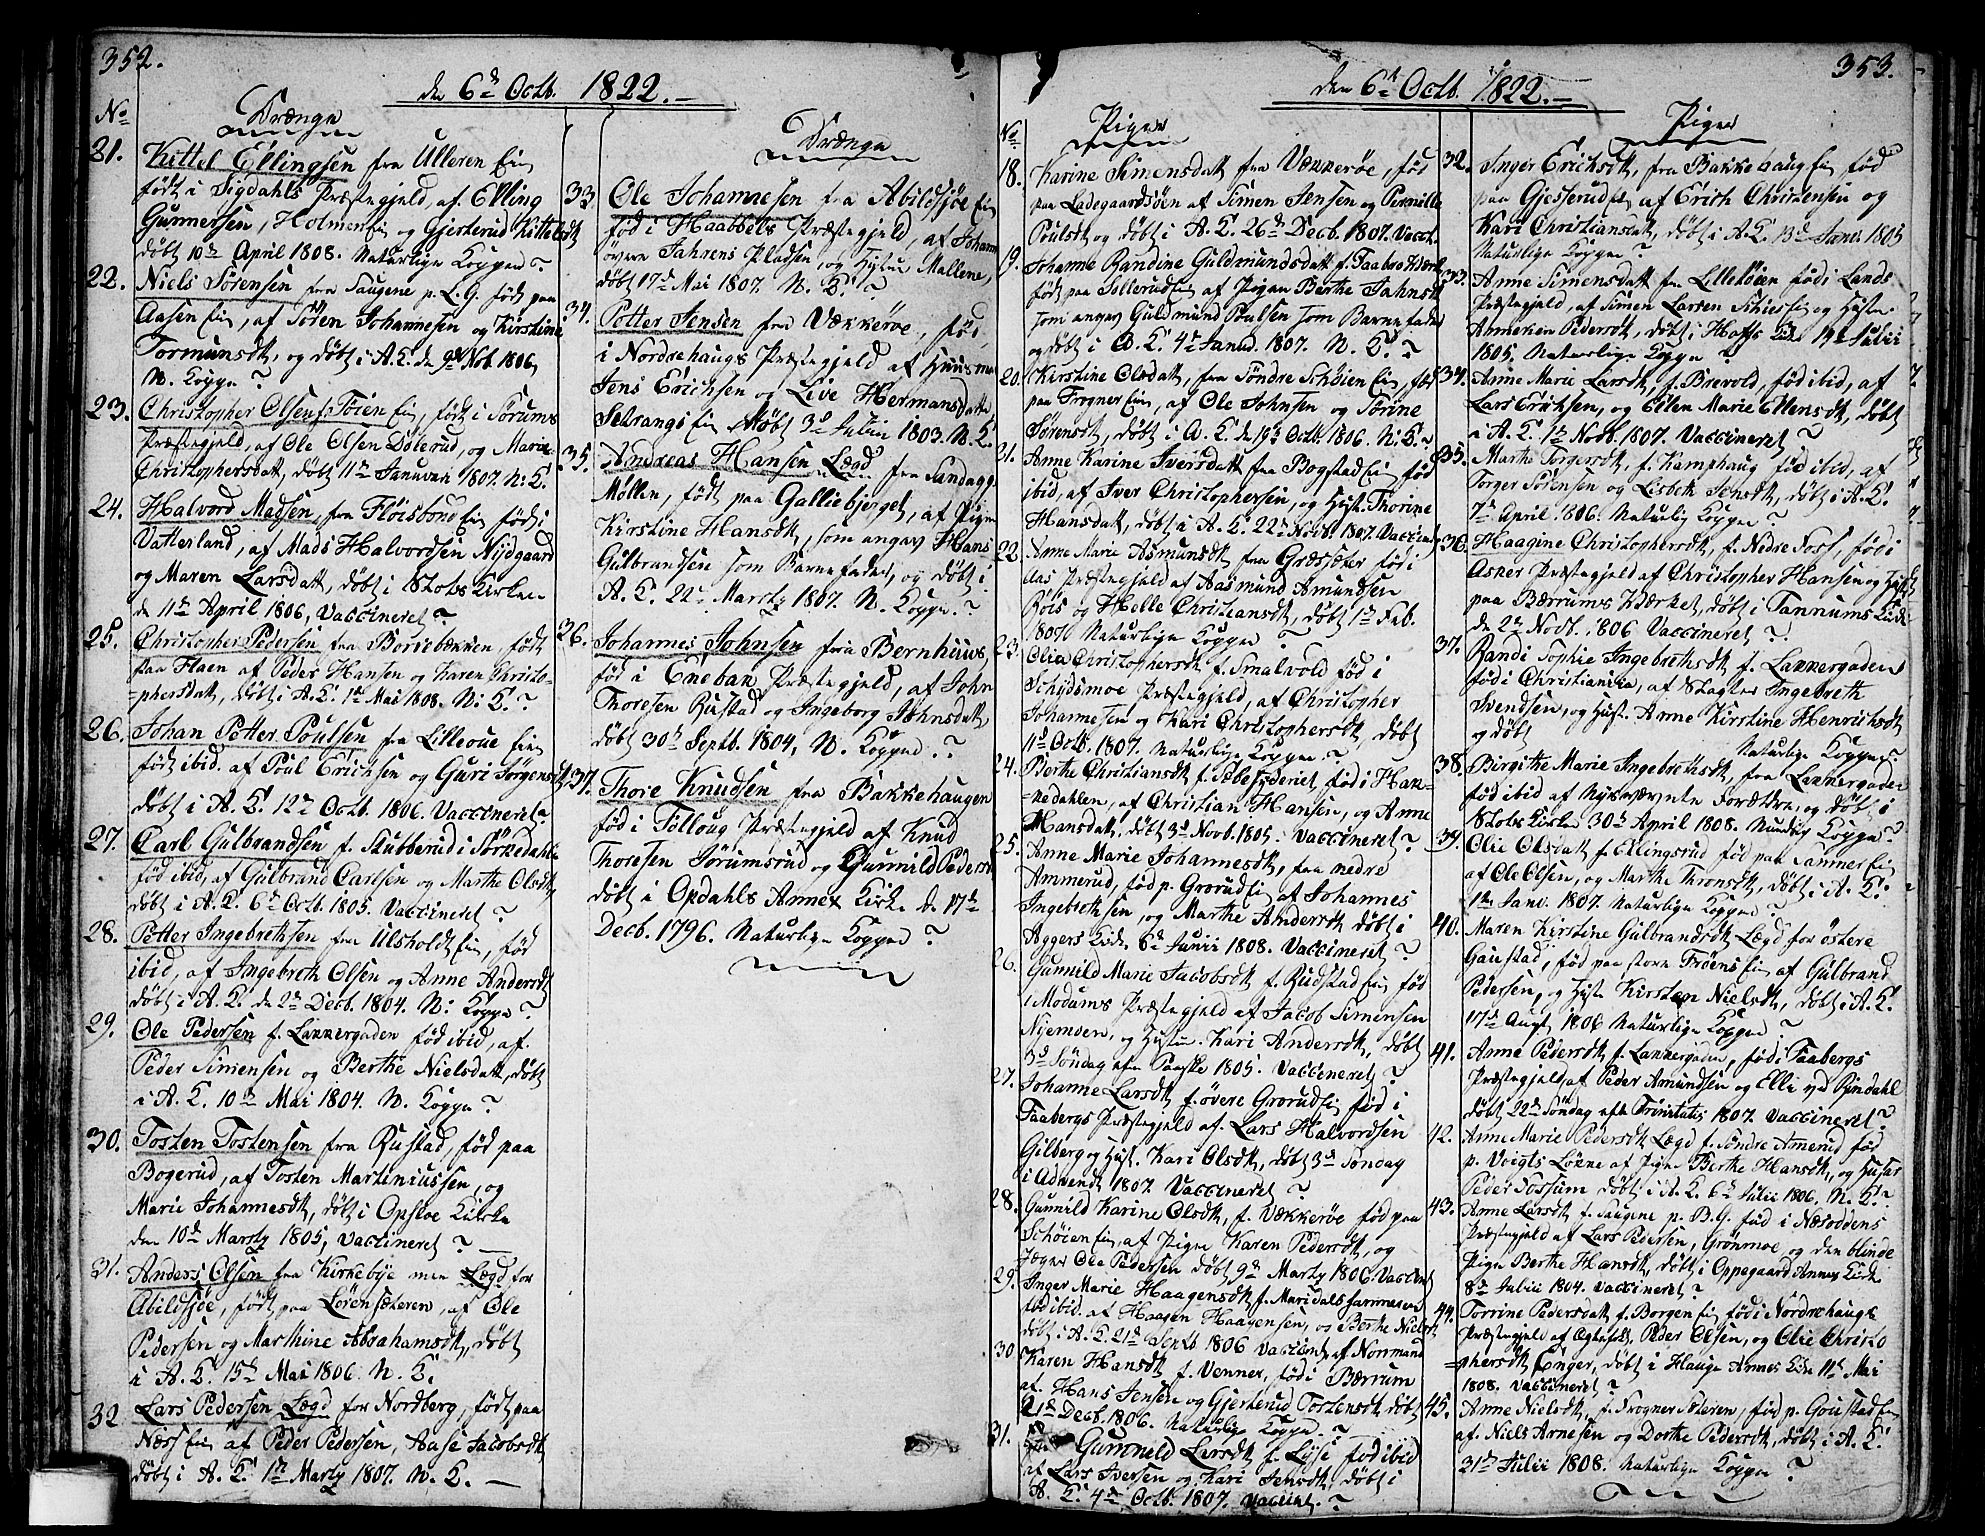 352.
den 6te Octb. 1822.
No
Drænge
21. Kittel Ellingsen fra Ulleren Ein
født i Sigdahls Præstegjeld, af Elling
Gunnersen, Holmen Ei og Gjertrud Kittelsdt
døbt 10de April 1808. Naturlige Kopper?
22. Niels Sörensen fra Saugene p. L. G. født paa
Aasen Ei, af Sören Johannesen og Kirstine
Tormunsdt, og døbt i A. K. de 9de Nob 1806,
N. Kopper?
23. Christopher Olsen f. Töien Ei, født i Sörums
Præstegjeld, af Ole Olsen Dölerud, og Marie
Christophersdatt, døbt 11te Januari 1807. N: K.
24. Halvord Madsen, fra Flöisbond Ei, född i
Vatterland, af Mads Halvordsen Nydgaard
og Maren Larsdatt, døbt i Slots Kirken
de 11te April 1806, Vaccineret?
25. Christopher Pedersen fra Borrebækken, født
paa Flaen af Peder Hansen og Karen Christo-
=phersdatt, døbt i A. K. 1te Mai 1808. N: K.?
26. Johan Petter Poulsen fra Lilleoue Ei
født ibid. af Poul Erichsen og Guri Jörgensdt
døbt i A. K. 12te Octb. 1806 Vaccineret?
27. Carl Gulbrandsen f. Skubberud i Sörkedahlen
föd ibid, af Gulbrand Carlsen og Marthe Olsdt,
døbt i A. K. 6te Octb. 1805. Vaccineret?
28. Petter Ingebrethsen fra Ulsholdt Ei, föd
ibid, af Ingebreth Olsen og Anne Andersdt
døbt i A. K. de 2de Decb. 1804. N: Kopper?
29. Ole Pedersen f. Lakkergaden föd ibid, af
Peder Simensen og Berthe Nielsdatt, døbt
i A. K. 10de Mai 1804. N. Kopper?
30. Tosten Tostensen fra Rustad, föd paa
Bogerud, af Tosten Martiniussen, og
Marie Johannesdt, døbt i Opsloe Kirke
den 10de Marty 1805, Vaccineret?
31. Anders Olsen fra Kirkebye men Lægd for
Abildsjöe, født paa Lörensæteren, af Ole
Pedersen og Marthine Abrahamsdt, døbt
i A. K. 15de Mai 1806. N. K.
32 Lars Pedersen Lægd for Nordberg, født paa
Næss Ei af Peder Pedersen, Aase Jacobsdt
døbt i A. K. 1te Marty 1807. N. K.
Drænge
33. Ole Johannesen fra Abildsjöe Ei
föd i Haabbels Præstegjeld, af Johann
övere Sahrens Pladsen, og Hustru Mallene,
døbt 17de Mai 1807. N. K.?
34. Petter Jensen fra Vækkeröe, föd,
i Nordrehaugs Præstegjeld af Huusmd
Jens Erichsen og Live Hermansdatt
Setrangs Ei døbt 3de Julii 1803. N. K.
35. Andreas Hansen Lægd fra Sandagg
Möllen, født paa Galliebjerget, af Pigen
Kirstine Hansdt, som angav Hans
Gulbrandsen som Barnefader, og døbt i
A. K. 22de Marty 1807. N. Kopper?
36. Johannes Johnsen fra Bernhuus,
föd i Eneban Præstegjeld, af John
Thoresen Rustad og Ingeborg Johnsdatt
døbt 30te Septb. 1804, N. Kopper?
37. Thore Knudsen fra Bakkehaugen
föd i Tölloug Præstegjeld af Knud
Thoresen Jörumsrud og Gunnild Pedersd
døbt i Opdahls Annex Kirke de 17de
Decb. 1796. Naturlige Kopper?
353.
den 6te Octb. 1822.
No
Piger
18. Karine Simensdatt fra Vækkeröe, föd
paa Ladegaardsöen af Simen Jensen og Pernille
Poulsdt og døbt i A. K. 26de Decb. 1807. Vacc.
19. Johanne Randine Guldmundsdatt f. Taabro Værk
født paa Sollerud Ei af Pigen Berthe Jahnsdt
som angav Guldmund Poulsen som Barnefader
og døbt i A. K. 4de Janud. 1807. N. K.?
20. Kirstine Olsdatt, fra Söndre Schöien Ei, föd
paa Frogner Ei, af Ole Johnsen og Torine
Sörensdt, døbt i A. K. de 19de Octb. 1806. N: K.?
21. Anne Karine Iversdatt fra Bogstad Ei föd
ibid, af Iver Christophersen, og Hust. Thorine
Hansdatt, døbt i A. K. 22de Novb. 1807. Vaccinr
22 Anne Marie Asmunsdt fra Græsjder föd i
Aas Præstegjeld af Aasmund Amundsen
Röis og Helle Christiansdt, døbt 1te Feb.
1807 Naturlige Kopper?
23. Olia Christophersdt f. Smalvold föd i
Schydsmoe Præstegjeld, af Christopher
Johannesen og Kari Christophersdt, døbt
11te Octb. 1807. Naturlige Kopper?
24. Berthe Christiansdt f. Sæbesyderiet föd i Hak-
=kedahlen, af Christian Hansen, og Anne
Hansdatt, døbt 3de Novb. 1805. Vaccineret?
25. Anne Marie Johannesdt, fra nedre
Ammerud, föd p. Grorud Ei af Johannes
Ingebrethsen, og Marthe Andersdt døbt i
Aggers Kirke 6te Junii 1808. Vaccineret?
26. Gunnild Marie Jacobsdt f. Rudstad Ei föd
i Modums Præstegjeld af Jacob Simensen
Nyemoen, og Hustru. Kari Andersdt, døbt
3de Söndag efter Paaske 1805. Vaccineret?
27. Johanne Larsdt f. övere Grorud Ei föd i
Faabergs Præstegjeld af Lars Halvordsen
Gilberg og Hust. Kari Olsdt, døbt 3de Söndag
i Advendt 1807. Vaccineret?
28. Gunnild Karine Olsdt, f. Vækkeröe föd paa
Schöien Ei, af Pigen Karen Pedersdt, og
Jæger Ole Pedersen døbt 9de Marty 1806. Vaccinet
29. Inger Marie Haagensdt f. Maridalshammeren
föd ibid. af Haagen Haagensen, og Berthe Nielsdt,
døbt i A. K. 21de Sept. 1806 Vaccinet
30 Karen Hansdt f. Venner, föd i Bærrum
af. Hans Jensen og Gjertrud Tostensdt døbt
21de Decb. 1806. Naturlige Kopper?
31. Gunneld Larsdt f. Lyse föd ibid
af Lars Iversen og Kari Jensdt, døbt i
A. K. 4de Octb. 1807. Vaccinet.?
Piger
32. Inger Erichsdt, fra Bakkehaug Ei föd
paa Gjesserud Ei af Erich Christensen og
Kari Christiansdt, døbt i A. K. 13de Janv. 1805
Naturlige Kopper?
33. Anne Simensdatt fra Lilletöien föd i Lands
Præstegjeld, af Simen Larsen Schies Ei og Hustru
Anneken Pedersdt, døbt i Hoffs Kirke 14de Julii
1805. Naturlige Kopper?
34. Anne Marie Larsdt, f. Brevold, föd ibid, af
Lars Erichsen, og Ellen Marie Ellensdt, døbt
i A. K. 1te Novb. 1807. Vaccineret?
35. Marthe Torgersdt, f. Kamphaug föd ibid, af
Torger Sörensen og Lisbeth Jensdt, døbt i A. K.
7de April 1806. Naturlig Kopper?
36. Haagine Christophersdt, f. Nedre Foss, föd i
Asker Præstegjeld af Christopher Hansen og Hust
paa Bærrums Værket, døbt i Tannums Kirke
de 2de Novb. 1806 Vaccineret?
37. Randi Sophie Ingebrethsdt f. Lakkergaden
föd i Christiania, af Slagter Ingebreth
Svendsen, og Hust. Anne Kirstine Henrichsdt
og døbt
Naturlige Kopper?
38. Birgithe Marie Ingebrethsdt, fra Lakkergaden
föd ibid af Nysnævnte Forældre, og døbt i
Slots Kirke 30te April 1808. Naturlig Kopper?
39. Olie Olsdatt f. Ellingsrud föd paa Sammer Ei
af Ole Olsen, og Marthe Thronsdt, døbt i A. K.
1te Janv. 1807. Naturlige Kopper?
40. Maren Kirstine Gulbrandsdt Lægd for östere
Gaustad, föd paa store Fröens Ei af Gulbrand
Pedersen, og Hustru Kirsten Nielsdt, døbt i A. K.
17de Augt 1806 Naturlige Kopper?
41. Anne Pedersdt f. Lakkergaden, föd i Faabergs
Præstegjeld, af Peder Amundsen og Elli
døbt 22de Söndag efter Trinitatis 1807. Vaccineret?
42. Anne Marie Pedersdt Lægd f. Söndre Amerud föd
p. Voigts Lökke af Pigen Berthe Hansdt, og Husar
Peder Fossum døbt i A. K. 6te Julii 1806. N. K.?
43. Anne Larsdt f. Saugene p. B. G. föd i Næsoddens
Præstegjeld af Lars Pedersen, Grönmoe og den blinde
Pigen Berthe Hansdt, døbt i Oppegaard Annex Kirke
8de Julii 1804. Vaccineret?
44. Torrine Pedersdatt f. Borgen Ei, föd i Nordrehaugs
Præstegjeld af Peder Olsen, og Olie Christo
=phersdt Enger, døbt i Hauge Annex Kirke 11te Mai
1808. Vaccineret?
45. Anne Nielsdt, f. Frogner Sæteren, föd p. Goustad Ei
af. Niels Arnesen og Dorthe Pedersdt, døbt i A. K.
31te Julii 1808. Naturlige Kopper?